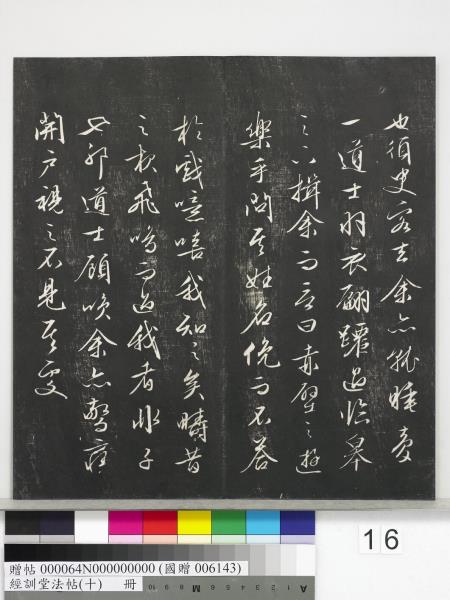 也須臾客去余亦就睡夢
一道士羽衣翩躚過臨皋
之下揖余而言曰赤壁之遊
樂乎問其姓名俛而不答
於戲噫嘻我知之矣疇昔
之夜飛鳴而過我者非子
也耶道士顧笑余亦驚寤
開戶視之不見其處
16
贈帖 000064N000000000 (國贈 006143)
經訓堂法帖(十) 冊